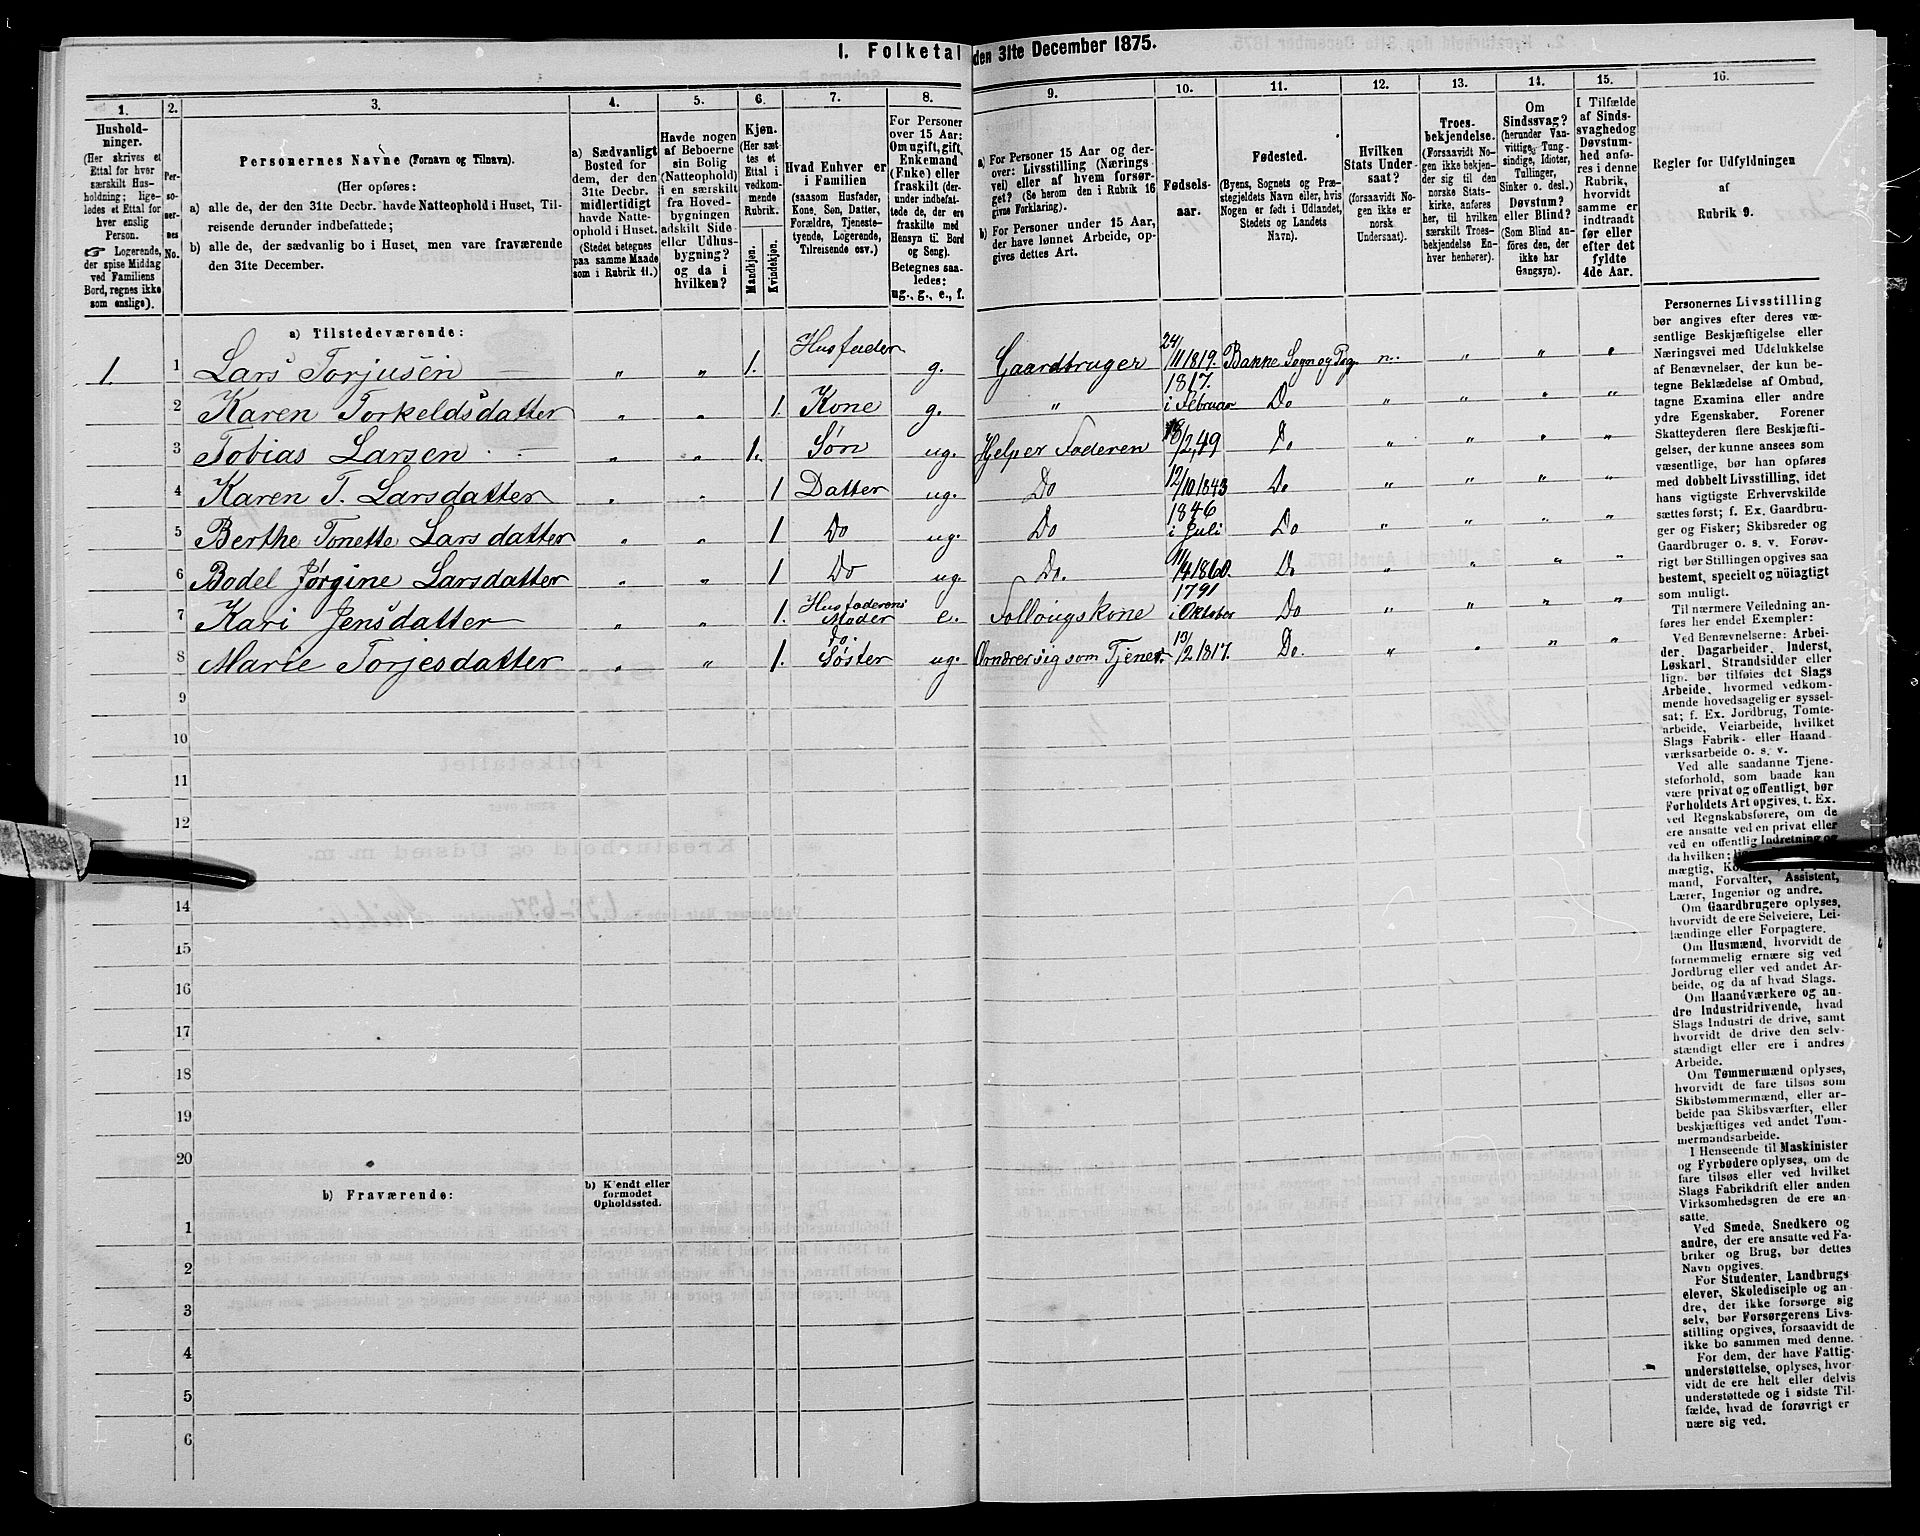 1. Folketal den 31te December 1875.
1. 2. 3. 4. 5. 6. 7. 8. 9. 10. 11. 12. 13. 14. 15. 16.
Hushold-
ninger.
(Her skrives et
Ettal for hver
særskilt Hus-
holdning; lige-
ledes et Ettal for
hver enslig
Person.
☞ Logerende,
der spise Middag
ved Familiens
Bord, regnes ikke
som enslige).
Per-
so-
ner-
nes
No.
Personernes Navne (Fornavn og Tilnavn).
(Her opføres:
a) alle de, der den 31te Decbr. havde Natteophold i Huset, Til-
reisende derunder indbefattede;
b) alle de, der sædvanlig bo i Huset, men vare fraværende
den 31te December.
a) Sædvanligt
Bosted for
dem, der den
31te Decbr.
midlertidigt
havde Natte-
ophold i Huset.
(Stedet betegnes
paa samme Maade
som i Rubrik 11.)
Havde nogen
af Beboerne
sin Bolig
(Natteophold)
i en særskilt
fra Hoved-
bygningen
adskilt Side-
eller Udhus-
bygning?
og da i
hvilken?
Kjøn.
(Her sæt-
tes et
Ettal i
vedkom-
mende
Rubrik.
Mandkjøn.
Kvindekjøn.
Hvad Enhver er
i Familien
(saasom Husfader,
Kone, Søn, Datter,
Forældre, Tjeneste-
tyende, Logerende,
Tilreisende osv.)
For Personer
over 15 Aar:
Om ugift, gift,
Enkemand
(Enke) eller
fraskilt (der-
under indbefat-
tede de, der ere
fraskilte med
Hensyn til Bord
og Seng).
Betegnes saa-
ledes:
ug., g., e., f.
a) For Personer 15 Aar og der-
over: Livsstilling (Nærings
vei) eller af hvem forsør-
get? (Se herom den i Rubrik 16
givne Forklaring).
b) For Personer under 15 Aar,
der have lønnet Arbeide, op-
gives dettes Art.
Fødsels-
aar.
Fødested.
(Byens, Sognets og Præ-
stegjeldets Navn eller, hvis
Nogen er født i Udlandet,
Stedets og Landets
Navn).
Hvilken
Stats Under-
saat?
(forsaavidt No-
gen ikke er
norsk
Undersaat).
Troes-
bekjendelse.
(Forsaavidt No-
gen ikke bekjen-
der sig til den
norske Stats-
kirke, anføres
her, til hvilken
særskilt Troes-
bekjendelse En-
hver henhører).
Om
Sindssvag?
(herunder Van-
vittige, Tung-
sindige, Idioter,
Tullinger,
Sinker o. desl.)
Døvstum?
eller Blind?
(Som Blind an-
føres den, der
ikke har
Gangsyn).
I Tilfælde
af Sinds-
svaghed og
Døvstum-
hed anfø-
res i denne
Rubrik,
hvorvidt
samme er
indtraadt
før eller
efter det
fyldte
4de Aar.
Regler for Udfyldningen
af
Rubrik 9.
a) Tilstedeværende:
1. 1 Lars Torjusen „ „ 1. Husfader g. Gaardbruger 24/11 1819. Bakke Sogn og Pg. n.. „ „ „
2 Karen Torkeldsdatter „ „ 1. Kone g. „ 1817. i Februar Do „ „ „ „
3 Tobias Larsen „ „ 1. Søn ug. Hjelper Faderen /2,49 Do „ „ „ „
4 Karen T. Larsdatter „ „ 1 Datter ug. Do 12/10 1843 Do „ „ „ „
5 Berthe Tonette Larsdatter „ „ 1 Do ug. Do 1846 i Juli Do „ „ „ „
6 Bodel Jørgine Larsdatter „ „ 1 Do ug. Do. /4 1860. Do „ „ „ „
7 Kari Jensdatter „ „ 1. Husfaderens Moder e. Follaugskone 1791 i Oktober Do „ „ „ „
8 Marie Torjesdatter „ „ 1. Do. Søster ug. Ernærer sig som Tjener. 13/2 1817. Do. „ „ „ „
9
10
11
12
13
14
15
16
17
18
19
20
b) Fraværende:
b) Kjendt eller
formodet
Opholdssted.
1
2
3
4
5
6
Personernes Livsstilling
bør angives efter deres væ-
sentlige Beskjæftigelse eller
Næringsvei med Udelukkelse
af Benævnelser, der kun be-
tegne Beklædelse af Ombud,
tagne Examina eller andre
ydre Egenskaber. Forener
Skatteyderen flere Beskjæfti-
gelser, der kunne ansees som
væsentlige, bør han opføres
med dobbelt Livsstilling, idet
hans vigtigste Erhvervskilde
sættes først; f. Ex. Gaardbru-
ger og Fisker; Skibsreder og
Gaardbruger o. s. v. Forøv-
rigt bør Stillingen opgives saa
bestemt, specielt og nöiagtigt
som muligt.
Til nærmere Veiledning an-
føres her endel Exempler:
Ved Benævnelserne: Arbei-
der, Dagarbeider, Inderst,
Løskarl, Strandsidder eller
lign. bør tilføies det Slags
Arbeide, hvormed vedkom-
mende hovedsagelig er syssel-
sat; f. Ex. Jordbrug, Tomte-
arbeide, Veiarbeide, hvilket
Slags Fabrik- eller Haand
værksarbeide o. s. v.
Ved alle saadanne Tjene-
steforhold, som baade kan
være privat og offentligt, bør
Forholdets Art opgives, t. Ex.
ved Regnskabsførere, om de
ere ansatte ved en privat eller
ved en offentlig Indretning og
da hvilken;
mægtig,
mand, Forvalter, Assistent,
Lærer, Ingeniør og andre.
Om Gaardbrugere oplyses,
hvorvidt de ere Selveiere, Lei-
lændinge eller Forpagtere.
Om Husmænd, hvorvidt de
fornemmelig ernære sig ved
Jordbrug eller ved andet Ar-
beide, og da af hvad Slags.
Om Haandværkere og an-
dre Industridrivende, hvad
Slags Industri de drive, samt
hvorvidt de drive den selv-
stændigt eller ere i andres
Arbeide.
Om Tømmermænd oplyses,
hvorvidt de fare tilsøs som
Skibstømmermænd, eller ar-
beide paa Skibsværfter, eller
beskjæftiges ved andet Tøm-
mermandsarbeide.
I Henseende til Maskinister
og Fyrbødere oplyses, om de
fare tilsøs eller ved hvilket
Slags Fabrikdrift eller anden
Virksomhedsgren de ere an-
satte.
Ved Smede, Snedkere og
andre, der ere ansatte ved Fa-
briker og Brug, bør dettes
Navn opgives.
For Studenter, Landbrugs
elever, Skoledisciple og an-
dre, der ikke forsørge sig
selv, bør Forsørgerens Livs-
stilling opgives, forsaavidt de
ikke bo sammen med denne.
For dem, der have Fattig-
understøttelse, oplyses, hvor-
vidt de ere helt eller delvis
understøttede og i sidste Til-
fælde, hvad de forøvrigt er
nære sig ved.